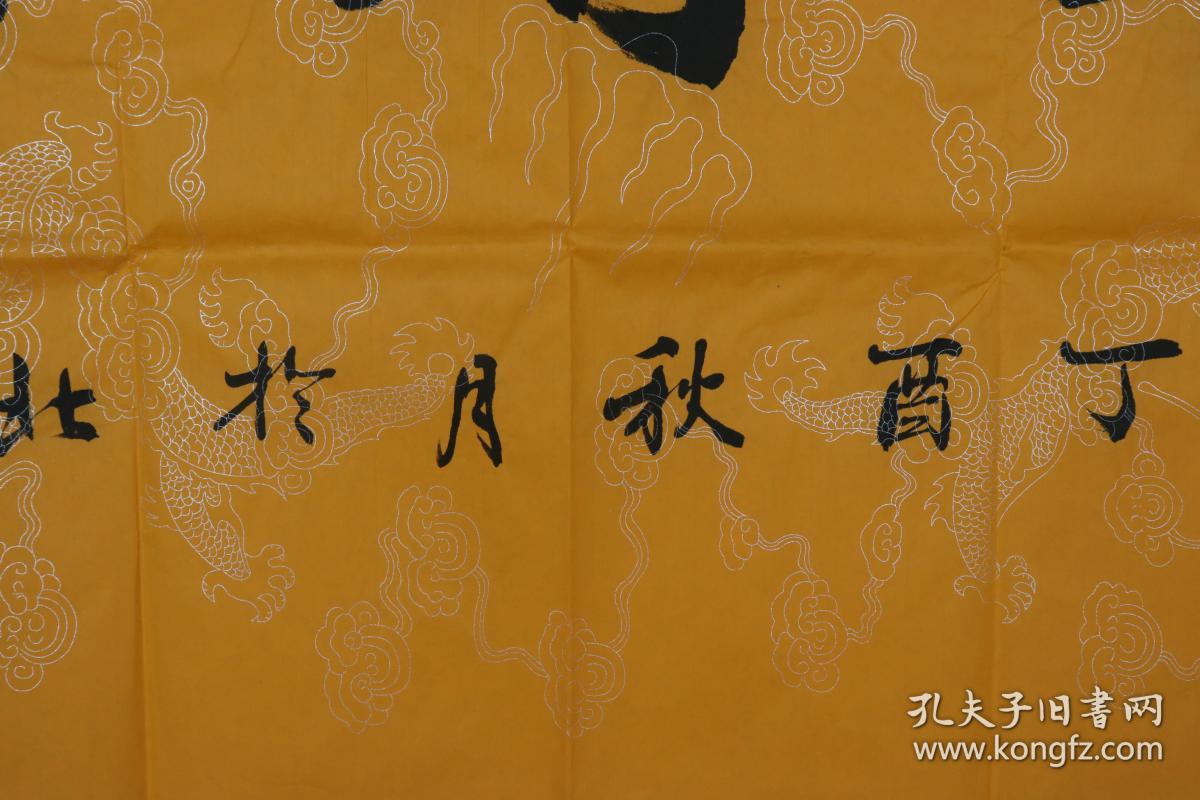 丁酉秋月於北
孔夫子旧書网
www.kongfz.com